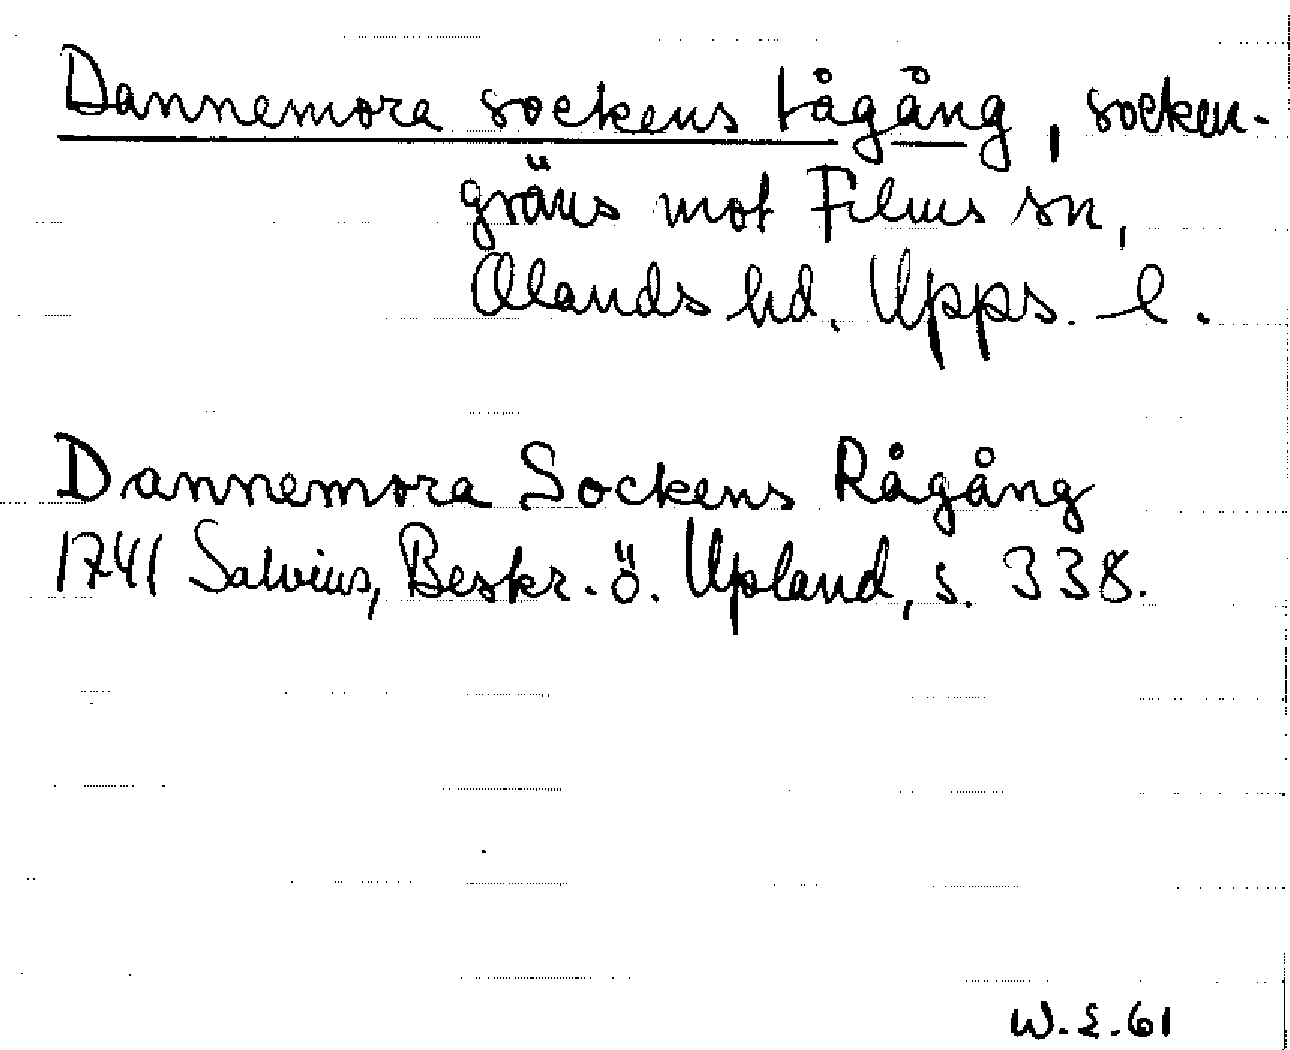 Dannemora sockens rågång, socken-
gräns mot Films sn,
Olands hd. Upps. l.
Dannemora Sockens Rågång
1741 Salvius, Beskr. ö. Upland, s. 338.
W.E.61